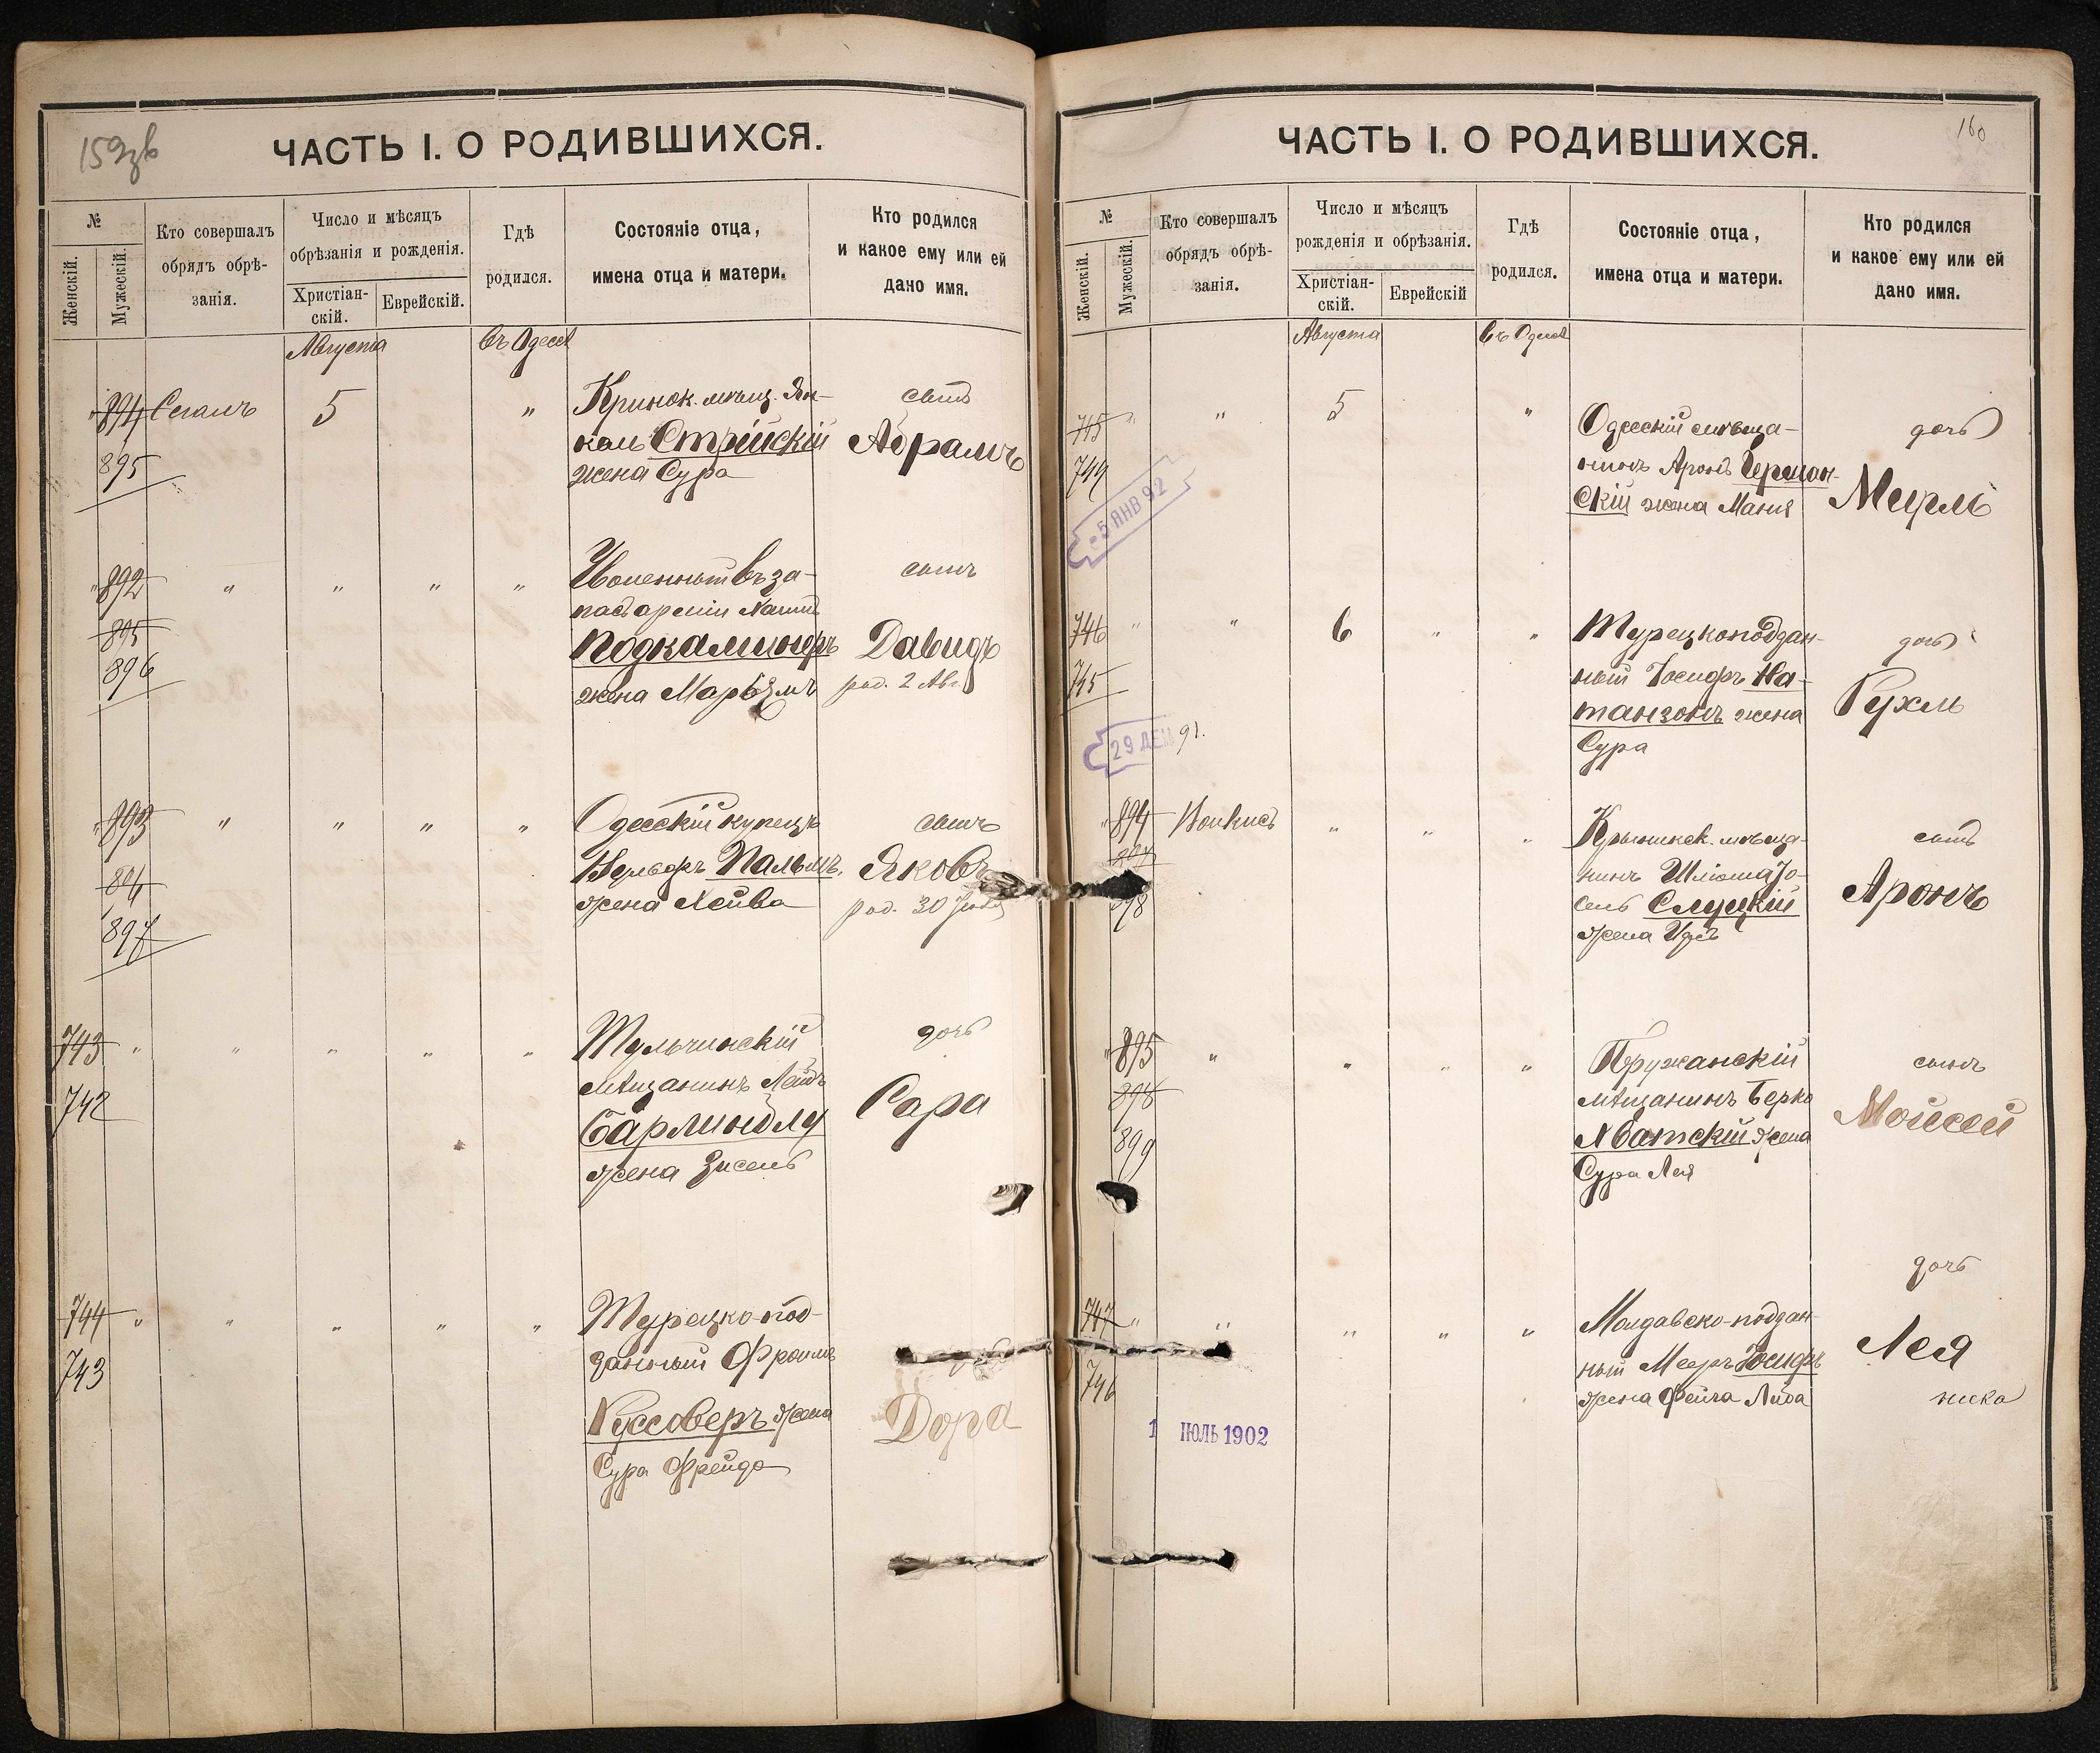 159зв
ЧАСТЬ I. О РОДИВШИХСЯ.
№
Женскій.
Мужескій.
Кто совершалъ
обрядъ обрѣ-
занія.
Число и мѣсяцъ
обрѣзанія и рожденія.
Христіан-
скій.
Еврейскій.
Гдѣ
родился.
Состояніе отца,
имена отца и матери.
Кто родился
и какое ему или ей
дано имя.
Августа
въ Одессѣ
894 Сегалъ 5 "
895
Кринок. мѣщ. Ян-
кель Стрійскій
жена Сура
сынъ
Абрамъ
" 892 " " " "
895
896
Уволенный въ за-
пасъ арміи
Подкаминеръ
жена
сынъ
Давидъ
род. 2 Авг
" 893 " " " "
894
897
Одесскій купецъ
Вульфъ Пальмъ,
жена Хейва
сынъ
Яковъ
род. 30
743 " " " " "
742
Тульчинскій
мѣщанинъ Лейбъ
жена Зисель
дочь
Сара
744 " " " " "
743
Турецко-под-
данный Фроимъ
Куссоверъ жена
Сура Фрейда
Дора
160
ЧАСТЬ I. О РОДИВШИХСЯ.
№
Женскій.
Мужескій.
Кто совершалъ
обрядъ обрѣ-
занія.
Число и мѣсяцъ
рожденія и обрѣзанія.
Христіан-
скій.
Еврейскій
Гдѣ
родился.
Состояніе отца,
имена отца и матери.
Кто родился
и какое ему или ей
дано имя.
Августа
въ Одессѣ
745 " " 5 "
744
5 ЯНВ 92
Одесскій мѣща-
нинъ Аронъ Герман-
скій жена Маня
дочь
746 " " 6 " "
745
29 ДЕК 91.
Турецкоподдан-
ный Іосифъ На-
танзонъ жена
Сура
дочь
Рухль
" 894 " " "
898
мѣща-
нинъ Шлiома Іо-
сель Слуцкій
жена
сынъ
Аронъ
" 895 " " " "
898
899
Пружанскій
мѣщанинъ Берко
Абатскій жена
Сура Лея
сынъ
Моисей
747 " " " " "
746
1 ІЮЛЬ 1902
Молдавско-поддан-
ный Мееръ Іосифъ
жена Фейга
дочь
Лея